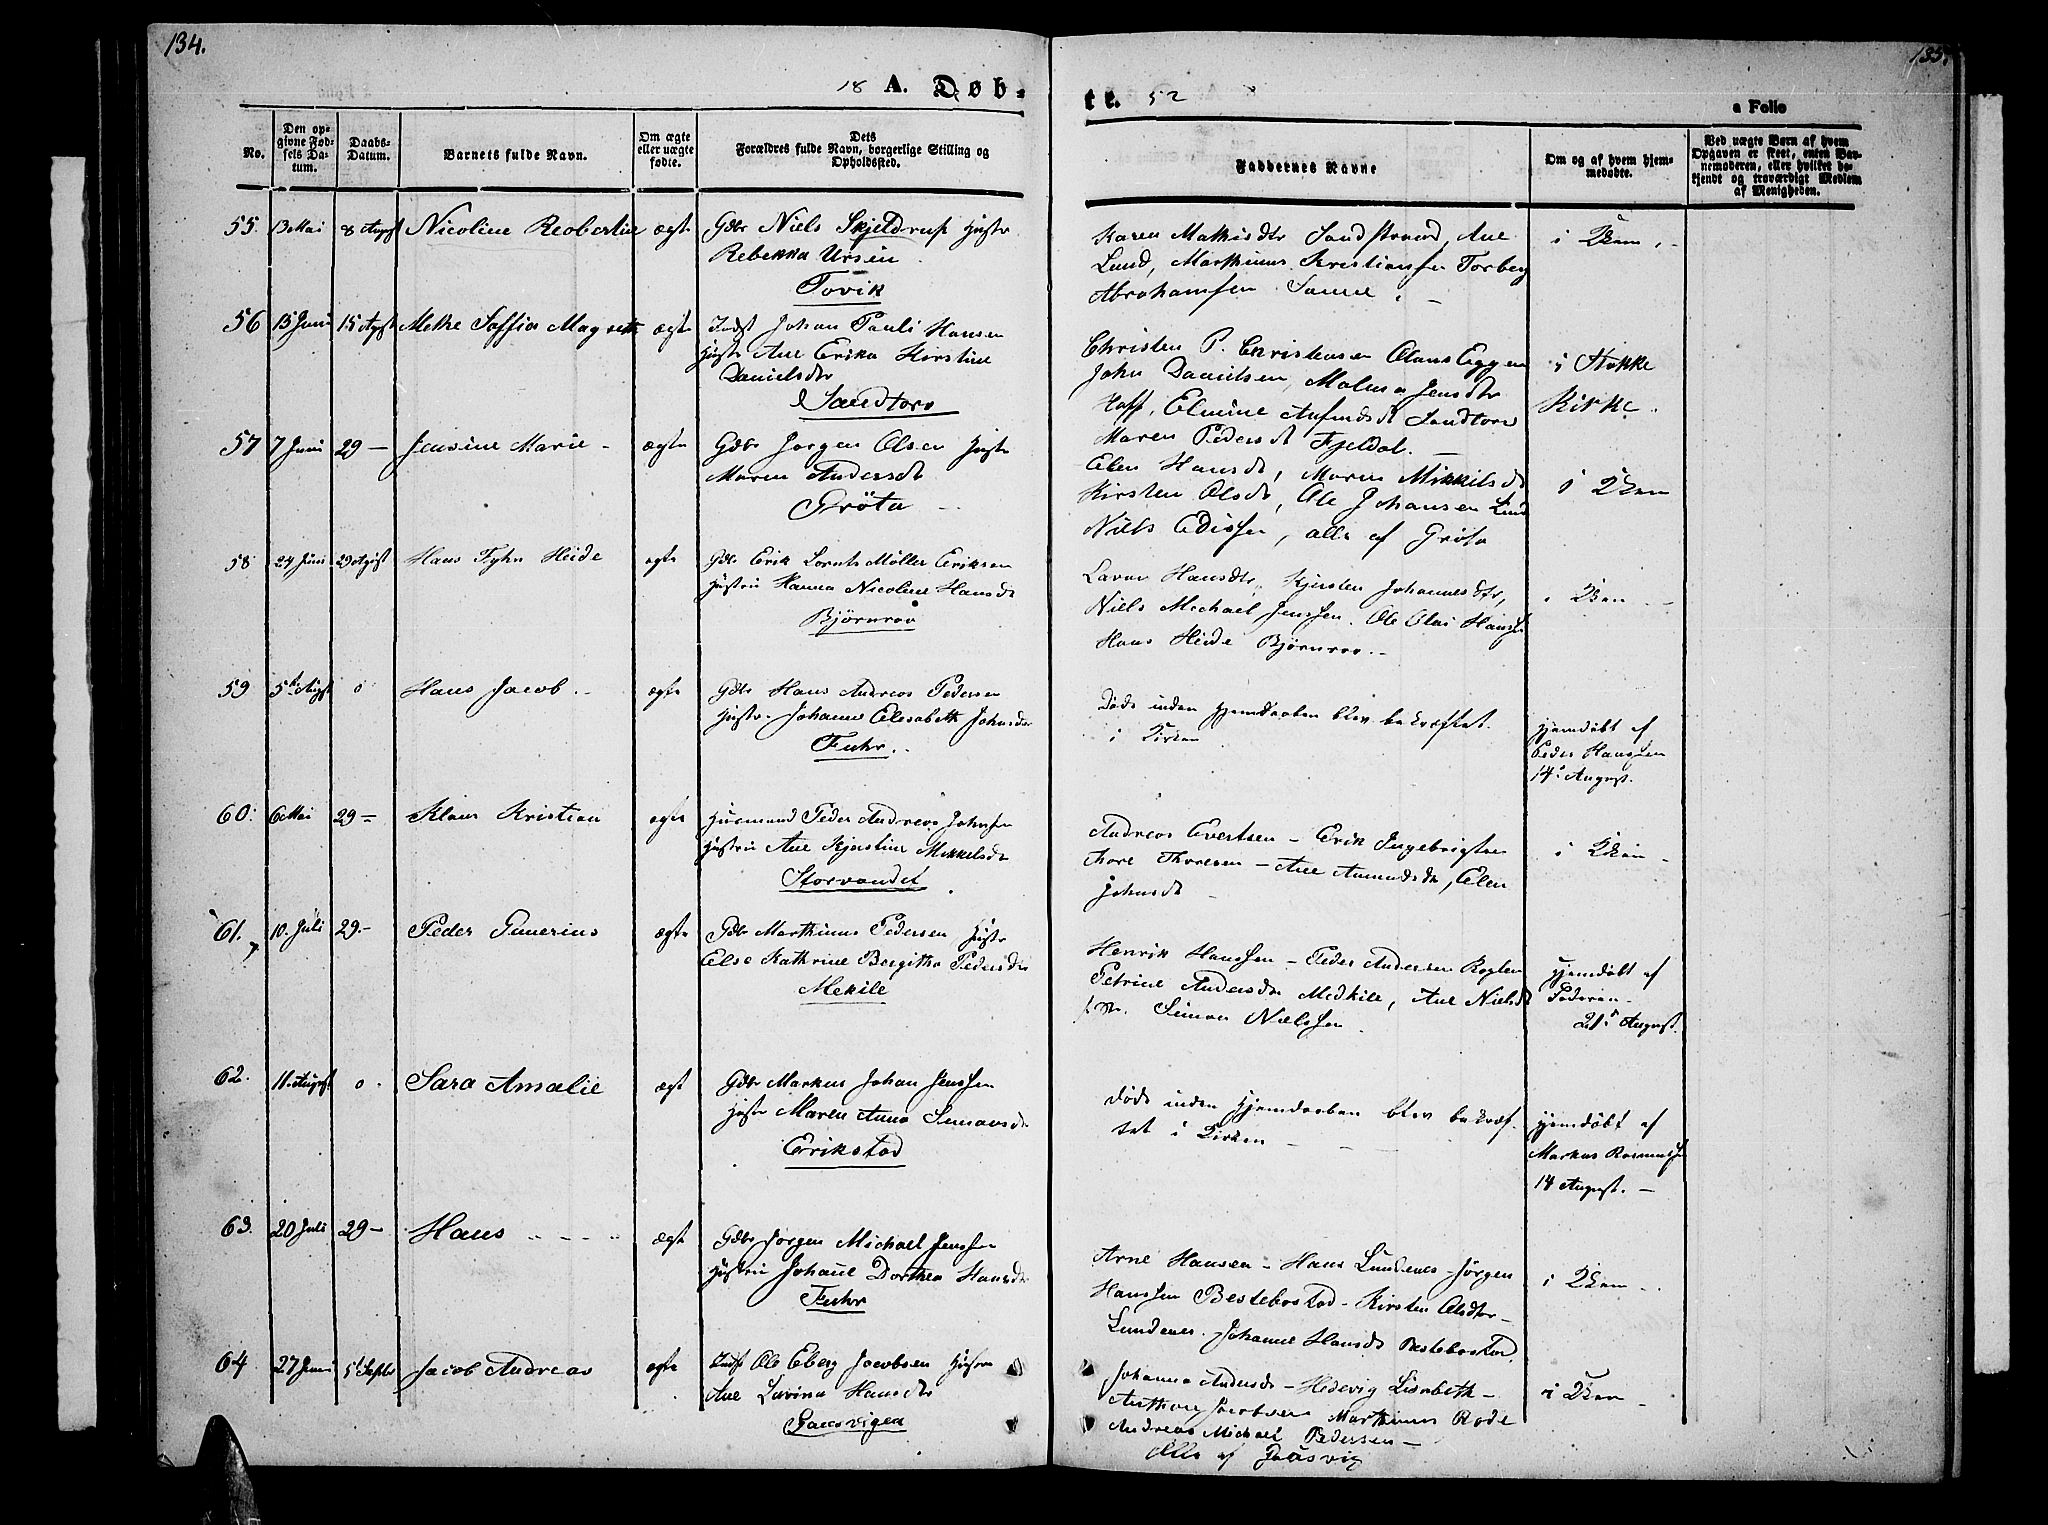 134.
135.
18 A. Døb-
te. 52
a Folio
No.
Den op-
givne Fød-
sels Da-
tum.
Daabs-
Datum.
Barnets fulde Navn.
Om ægte
eller uægte
fødte.
Dets
Forældres fulde Navn, borgerlige Stilling og
Opholdssted.
Faddernes Navne
Om og af hvem hjem-
medøbte.
Ved uægte Børn af hvem
Opgaven er skeet, enten Bar-
nemoderen, eller hvilket be-
kjendt og troværdigt Medlem
af Menigheden.
55. 13 Mai 8 August Nicoline Reobertine ægte Gdbr Niels Skjeldrup Hustr
Rebekka Ursin
Tovik
Karen Mathisdtr Sandstrand, Ane
Lund, Marthinus Kristiansen Torberg
Abrahamsen Samme
i Kken
56 13 Juni 15 Augst Methe Soffia Magrethe ægte Indst Johan Pauli Hansen
Hustr Ane Erika Kirstine
Danielsdtr
Sandtorv
Christen P. Christensen Olaus Eggen
John Danielsen, Malena Jensdtr
Hoff, Elmine Sandtorv
Maren Pedersdt Fjeldal.
i Stokke
Kirke.
57 7 Juni 29 — Jensine Marie ægte Gdbr Jørgen Olsen Hustr
Maren Andersdt
Grøta
Elen Hansdt, Maren Mikkilsdt
Kirsten Olsdt, Ole Johansen Lund
Niels Edissen, alle af Grøta
i Kken
58 24 Juni 29 Augst Hans Fyhn Heide egte Gdbr Erik Lornts Møller Eriksen
Hustru Hanna Nicoline Hansdt
Bjørnraa
Lavan Hansdtr, Kjirsten Johannesdtr,
Niels Michael Jenssen. Ole Olai Hanss
Hans Heide Bjørnraa
i Kken
59 5te Augst 0 Hans Jacob ægte Gdbr Hans Andreas Pedersen
Hustr. Johanna Elesabeth Johnsdtr
Fuhr
Døde inden Hjemdaaben blev bekræftet
i Kirken
Hjemdøbt af
Peder Hanssen
14de August.
60. 6 Mai 29 — Klaus Kristian egte Husmand Peder Andreas Johnsen
Hustru Ane Kjerstine Mikkelsdt
Storvandet
Andreas Evertsen — Erik Ingebrigtsen
Thore Thoresen — Ane Amundsdt, Elen
Johnsdt
i Kken
61. 10. Juli 29.- Peder Gunerius ægte Gdbr Marthinus Pedersen Hustr
Else Kathrine Bergitha Pedersdtr
Mekile
Henrik Hanssen — Peder Andersen Roglen
Petrine Andersdtr Medkile, Ane Nielsdt
Simon Nielssen
Hjemdøbt af
Faderen
21de August.
62. 11. August 0. Sara Amalie ægt Gdbr Markus Johan Jenssen
Hustr Maren Anna Simonsd
Erikstad
døde inden Hjemdaaben blev bekræf-
tet i Kirken
Hjemdøbt af
Markus Rasmuss
14 August. —
63. 20 Juli 29 — Hans ægt Gdbr Jørgen Michael Jenssen
Hustru Johane Dorthea Hansdt
Fuhr
Arne Hansen — Hans Lundenes — Jørgen
Hanssen Bestebostad — Kirsten Olsdtr —
Lundenes. Johanne Hansdt Bestebostad.
i Kken
64. 27 Juni 5t Septbr Jacob Andreas egte Indst Ole Eberg Jacobsen Hustru
Ane Lavina Hansdtr
Gausvigen
Johanna Andersdt — Hedevig Lisabeth —
Anthon Jacobsen Marthinus Rode
Andreas Michael Pedersen —
Alle af Gausvig
i Kken